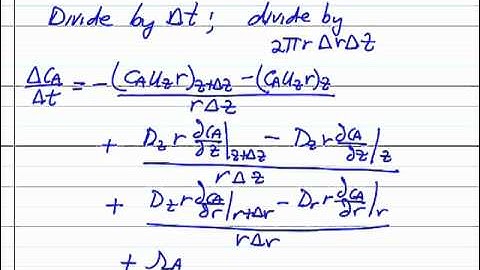 Divide by Δt; divide by
2πr Δr Δz
ΔC_A/Δt = -((C_A U_z r)_{z+Δz} - (C_A U_z r)_z)/(r Δz)
+ (D_z r ∂C_A/∂z|_{z+Δz} - D_z r ∂C_A/∂z|_z)/(r Δz)
+ (D_z r ∂C_A/∂r|_{r+Δr} - D_r r ∂C_A/∂r|_r)/(r Δr)
+ r_A